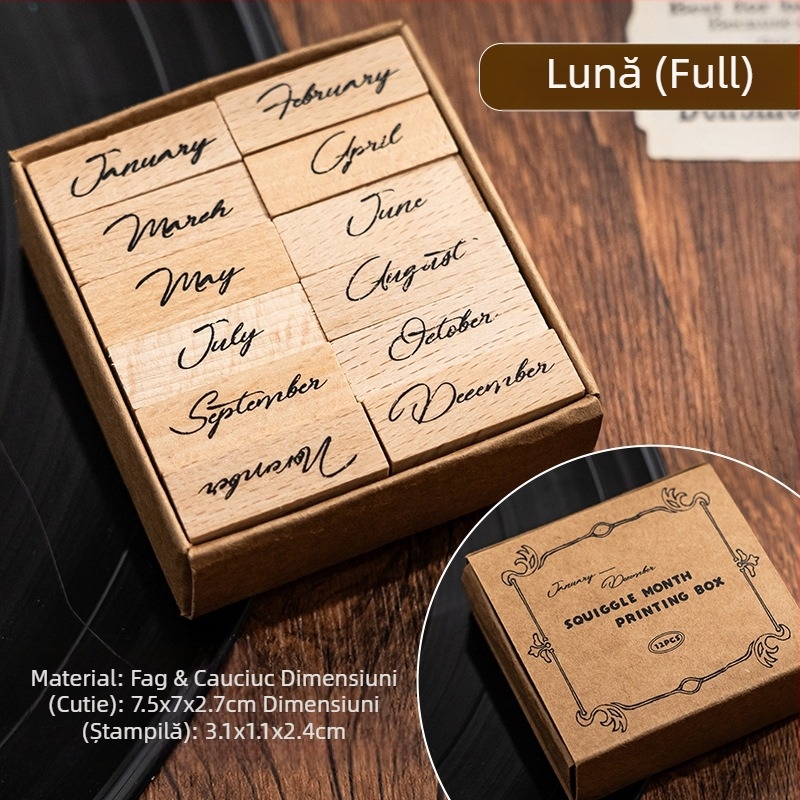 Lună (Full)
February
January
April
March
June
May
August
July
October
September
December
November
January — December
SQUIGGLE MONTH
PRINTING BOX
12PCS
Material: Fag & Cauciuc Dimensiuni
(Cutie): 7.5x7x2.7cm Dimensiuni
(Ștampilă): 3.1x1.1x2.4cm